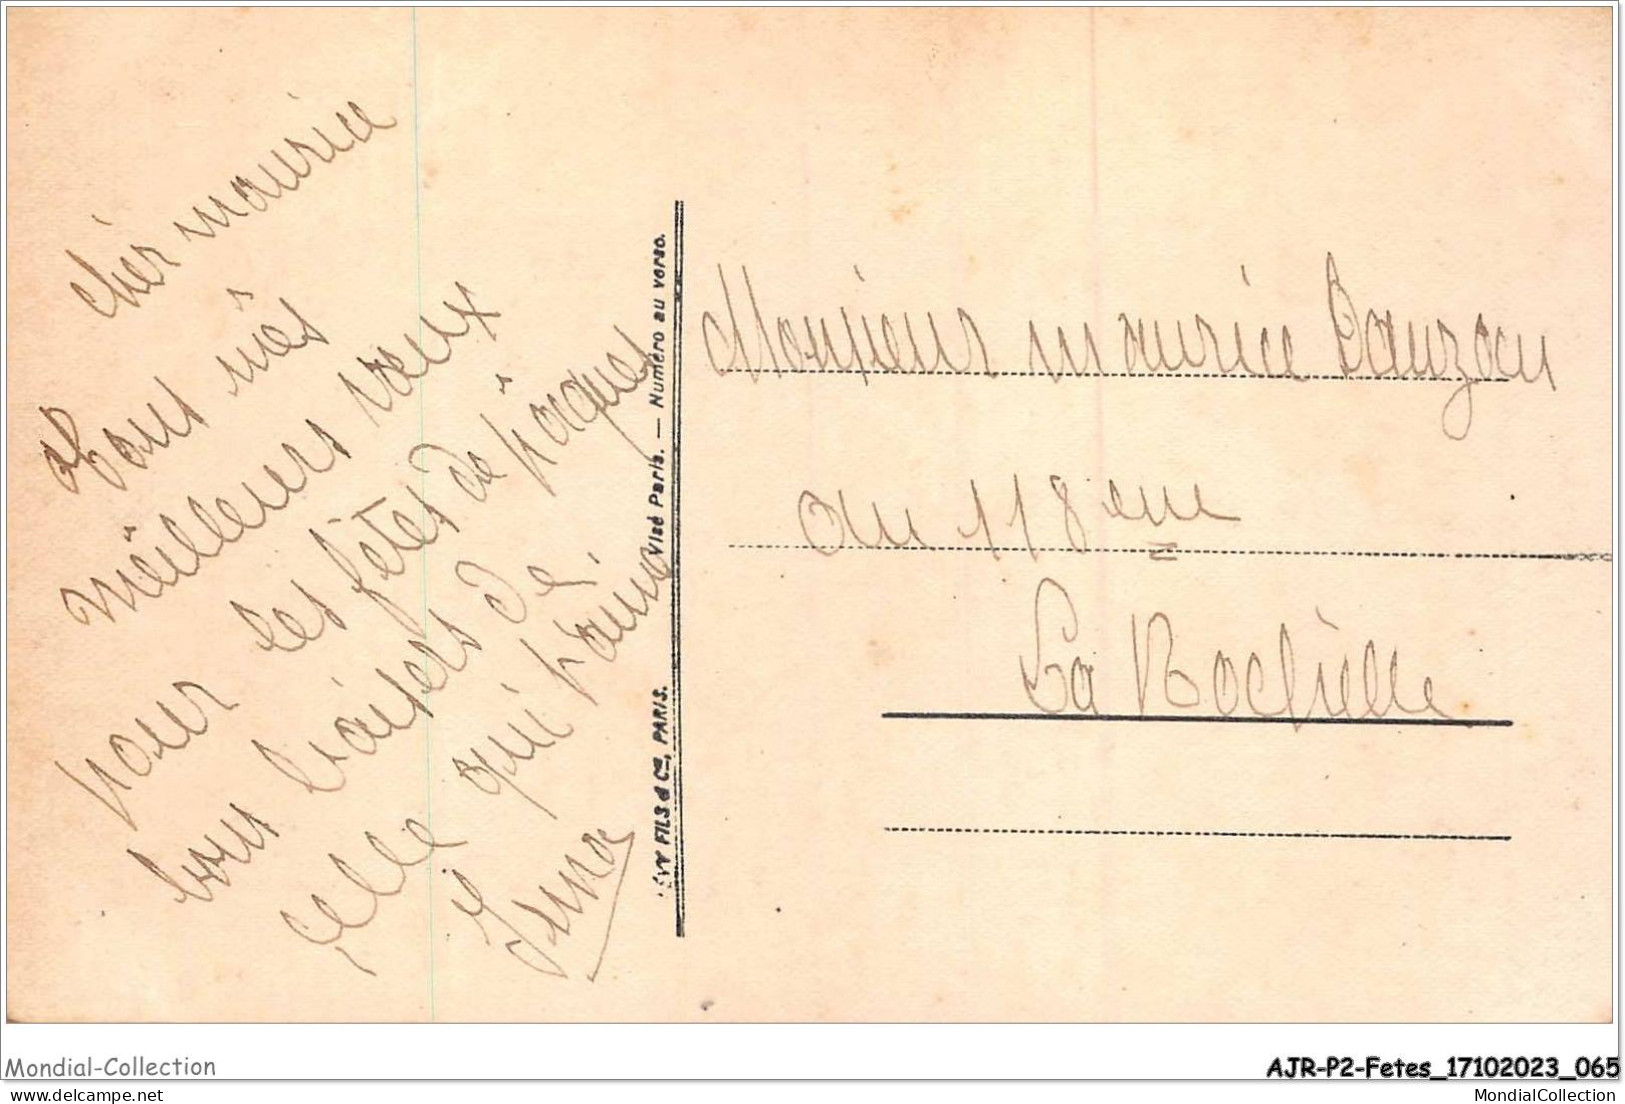 cher maurice
Tous mes
meilleurs vœux
pour les fêtes de pâques
bons baisers de
celle qui t'aime
Irma
LÉVY FILS & Cie, PARIS.
Visé Paris. — Numéro au verso.
Monsieur maurice
au 118 eme
La Rochelle
Mondial-Collection
AJR-P2-Fetes_17102023_065
delcampe.net
MondialCollection